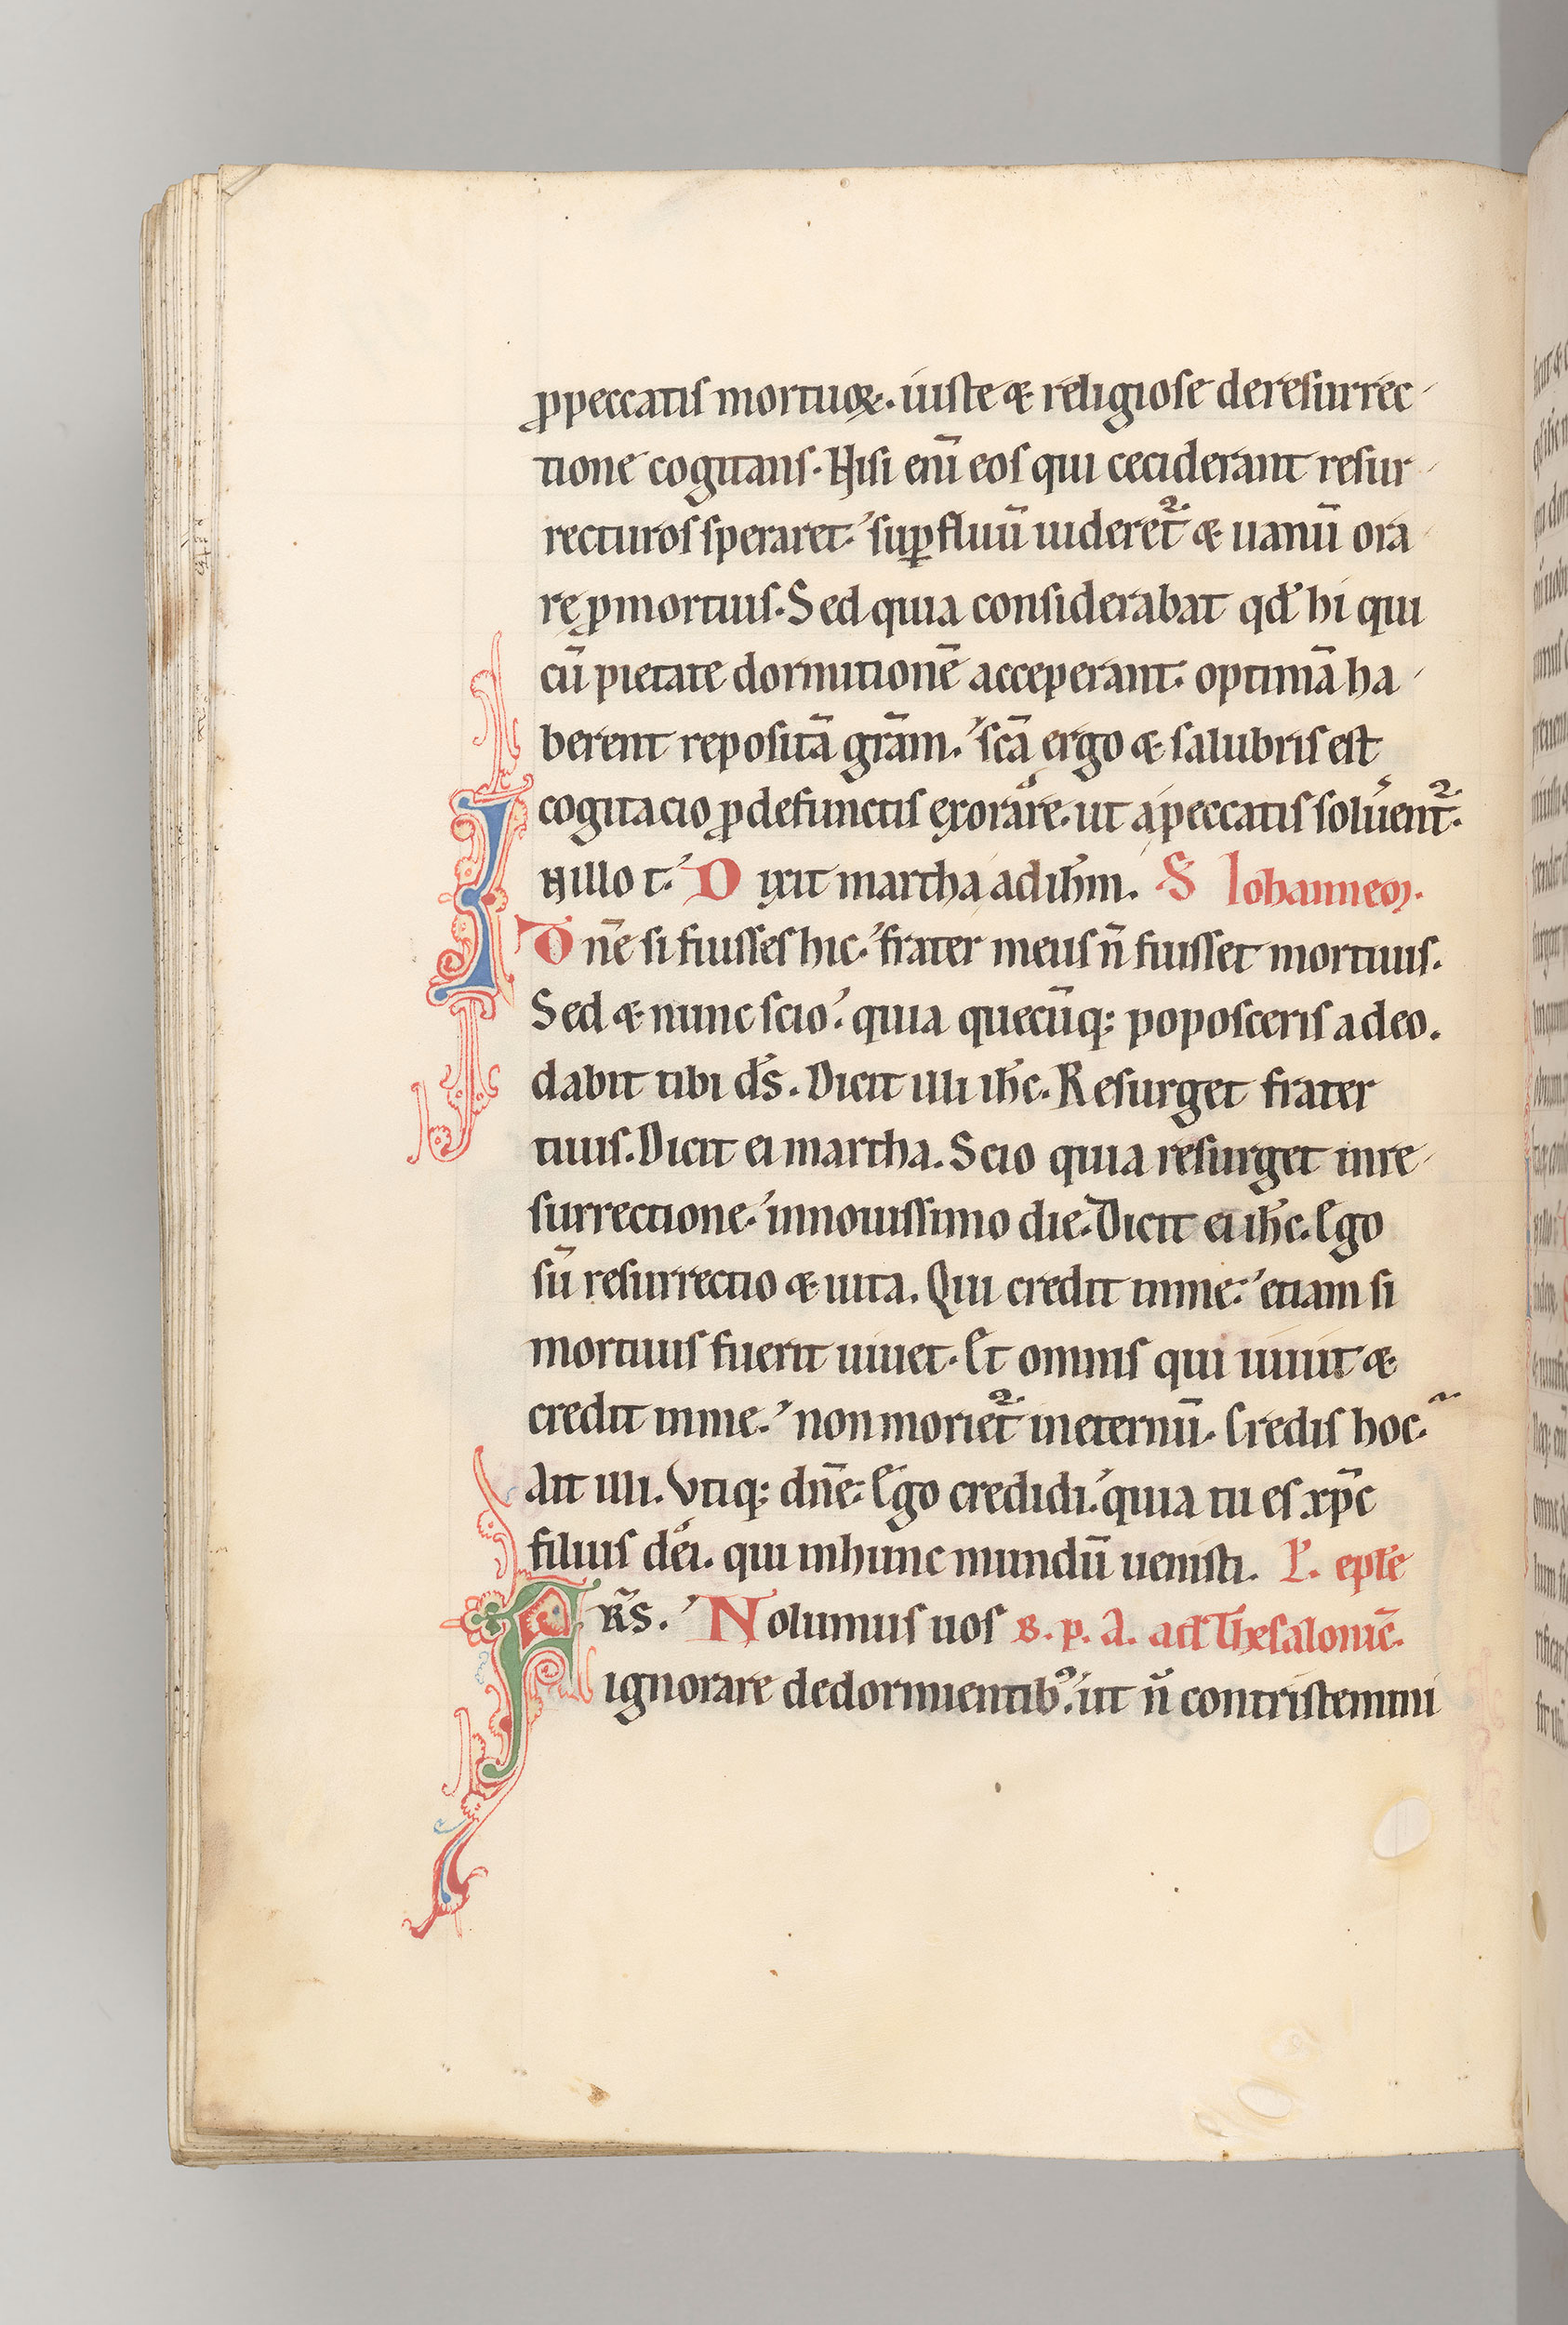 ꝓpeccatis mortuoꝝ. iuste & religiose deresurrec-
tione cogitans. Nisi eni̅ eos qui ceciderant resur-
recturos speraret. suꝑfluu̅ uideret᷑ & uanu̅ ora-
re ꝓmortuis. Sed quia considerabat qd̕ hi qui
cu̅ pietate dormitione̅ acceperant. optima̅ ha-
berent reposita̅ gr̅am. sc̅a ergo & salubris est
cogitacio ꝓdefunctis exorare. ut apeccatis soluent᷑.
INillo t. Dixit martha adih̅m. S Iohanneꝫ.
Dn̅e si fuisses hic. frater meus n̅ fuisset mortuus.
Sed & nunc scio. quia quecu̅q; poposceris adeo.
dabit tibi d̅s. Dicit illi ih̅c. Resurget frater
tuus. Dicit ei martha. Scio quia resurget inre-
surrectione. innouissimo die. Dicit ei ih̅c. Ego
su̅ resurrectio & uita. Qui credit inme. etiam si
mortuus fuerit uiuet. Et omnis qui uiuit &
credit inme. non moriet᷑ ineternu̅. Credis hoc.
Ait illi. Vtiq; dn̅e. Ego credidi. quia tu es xp̅c
filius dei. qui inhunc mundu̅ uenisti. L. epl̅e
FRS. Nolumus uos B. p. A. ad Thesalonic̅.
ignorare dedormientibꝰ. ut n̅ contristemini